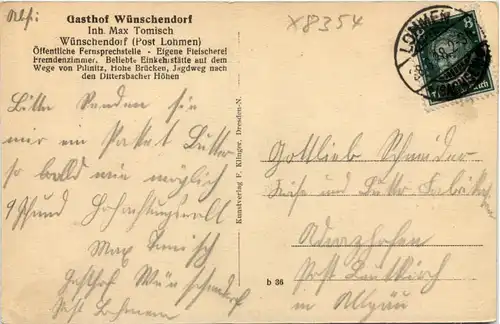 Abs:
Gasthof Wünschendorf
Inh. Max Tomisch
Wünschendorf (Post Lohmen)
Öffentliche Fernsprechstelle - Eigene Fleischerei
Fremdenzimmer. Beliebte Einkehrstätte auf dem
Wege von Pillnitz, Hohe Brücken, Jagdweg nach
den Dittersbacher Höhen
x8354
LOHMEN
8
Bitte Senden sie
mir ein Paket Butter
so bald wie möglich
9 Pfund Hochachtungsvoll
Max Tomisch
Gasthof Wünschendorf
Post Lohmen
Kunstverlag F. Klinger, Dresden-N.
b 36
Gottlieb Schneider
Käse und Butter Fabrik
Adrazhofen
Post Leutkirch
in Allgäu